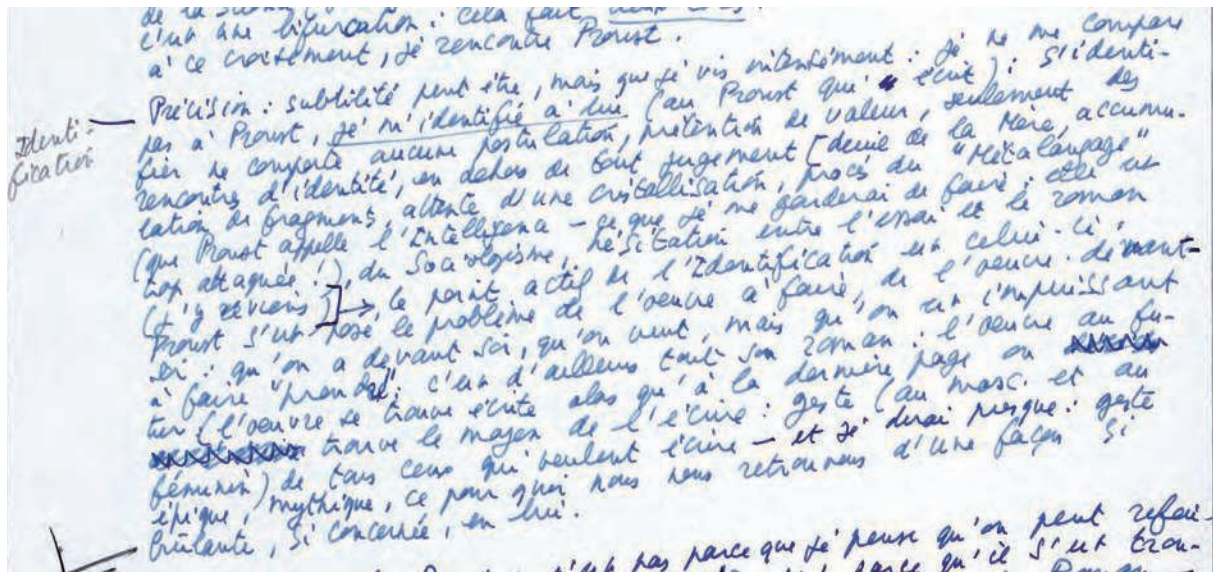 c'est une bifurcation : cela fait deux côtés.
à ce croisement, je rencontre Proust.
Identi-
fication
— Précision : subtilité peut être, mais que je vis intensément : je ne me compare
pas à Proust, je m'identifie à lui (au Proust qui écrit) : s'identi-
fier ne comporte aucune postulation, prétention de valeur, seulement des
rencontres d'identité, en dehors de tout jugement [deuil de la Mère, accumu-
lation de fragments, attente d'une cristallisation, procès du "Métalangage"
(que Proust appelle l'Intelligence – ce que je me garderai de faire : elle est
trop attaquée !), du Sociologisme, hésitation entre l'essai et le roman
(j'y reviens)] → le point actif de l'Identification est celui-ci :
Proust s'est posé le problème de l'œuvre à faire, de l'œuvre-devant-
soi : qu'on a devant soi, qu'on veut, mais qu'on est impuissant
à faire "prendre" : c'est d'ailleurs tout son roman : l'œuvre au fu-
tur (l'œuvre se trouve écrite alors qu'à la dernière page on
trouve le moyen de l'écrire : geste (au masc. et au
féminin) de tous ceux qui veulent écrire – et je dirai presque : geste
épique, mythique, ce pour quoi nous nous retrouvons d'une façon si
brûlante, si concernée, en lui.
n'est pas parce que je pense qu'on peut refai-
parce qu'il s'est trou-